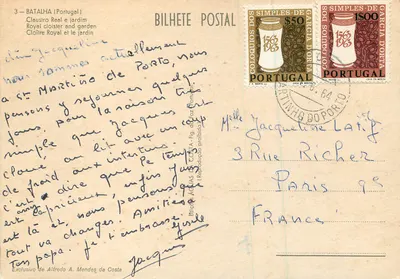 3 — BATALHA (Portugal)
Claustro Real e jardim
Royal cloister and garden
Cloître Royal et le jardin
BILHETE POSTAL
COLÓQUIOS DOS SIMPLES DE GARCIA D'ORTA
$50
PORTUGAL
COLÓQUIOS DOS SIMPLES DE GARCIA D'ORTA
1$00
PORTUGAL
MARTINHO DO PORTO
Jacqueline
nous sommes actuellement
a St Martiño de Porto, nous
pensons y séjourner quelques
jours, pour la raison très
simple que Jacques est
cloué au lit avec un coup
de froid aux intestins
c'est à dire que le temps
est capricieux, enfin José
est là et nous pensons que
tout va changer. Amitiés à
ton papa. Je t'embrasse
Jacques
Melle Jacqueline
3 Rue Richer
Paris 9e
France
Exclusivo de Alfredo A. Mendes da Costa